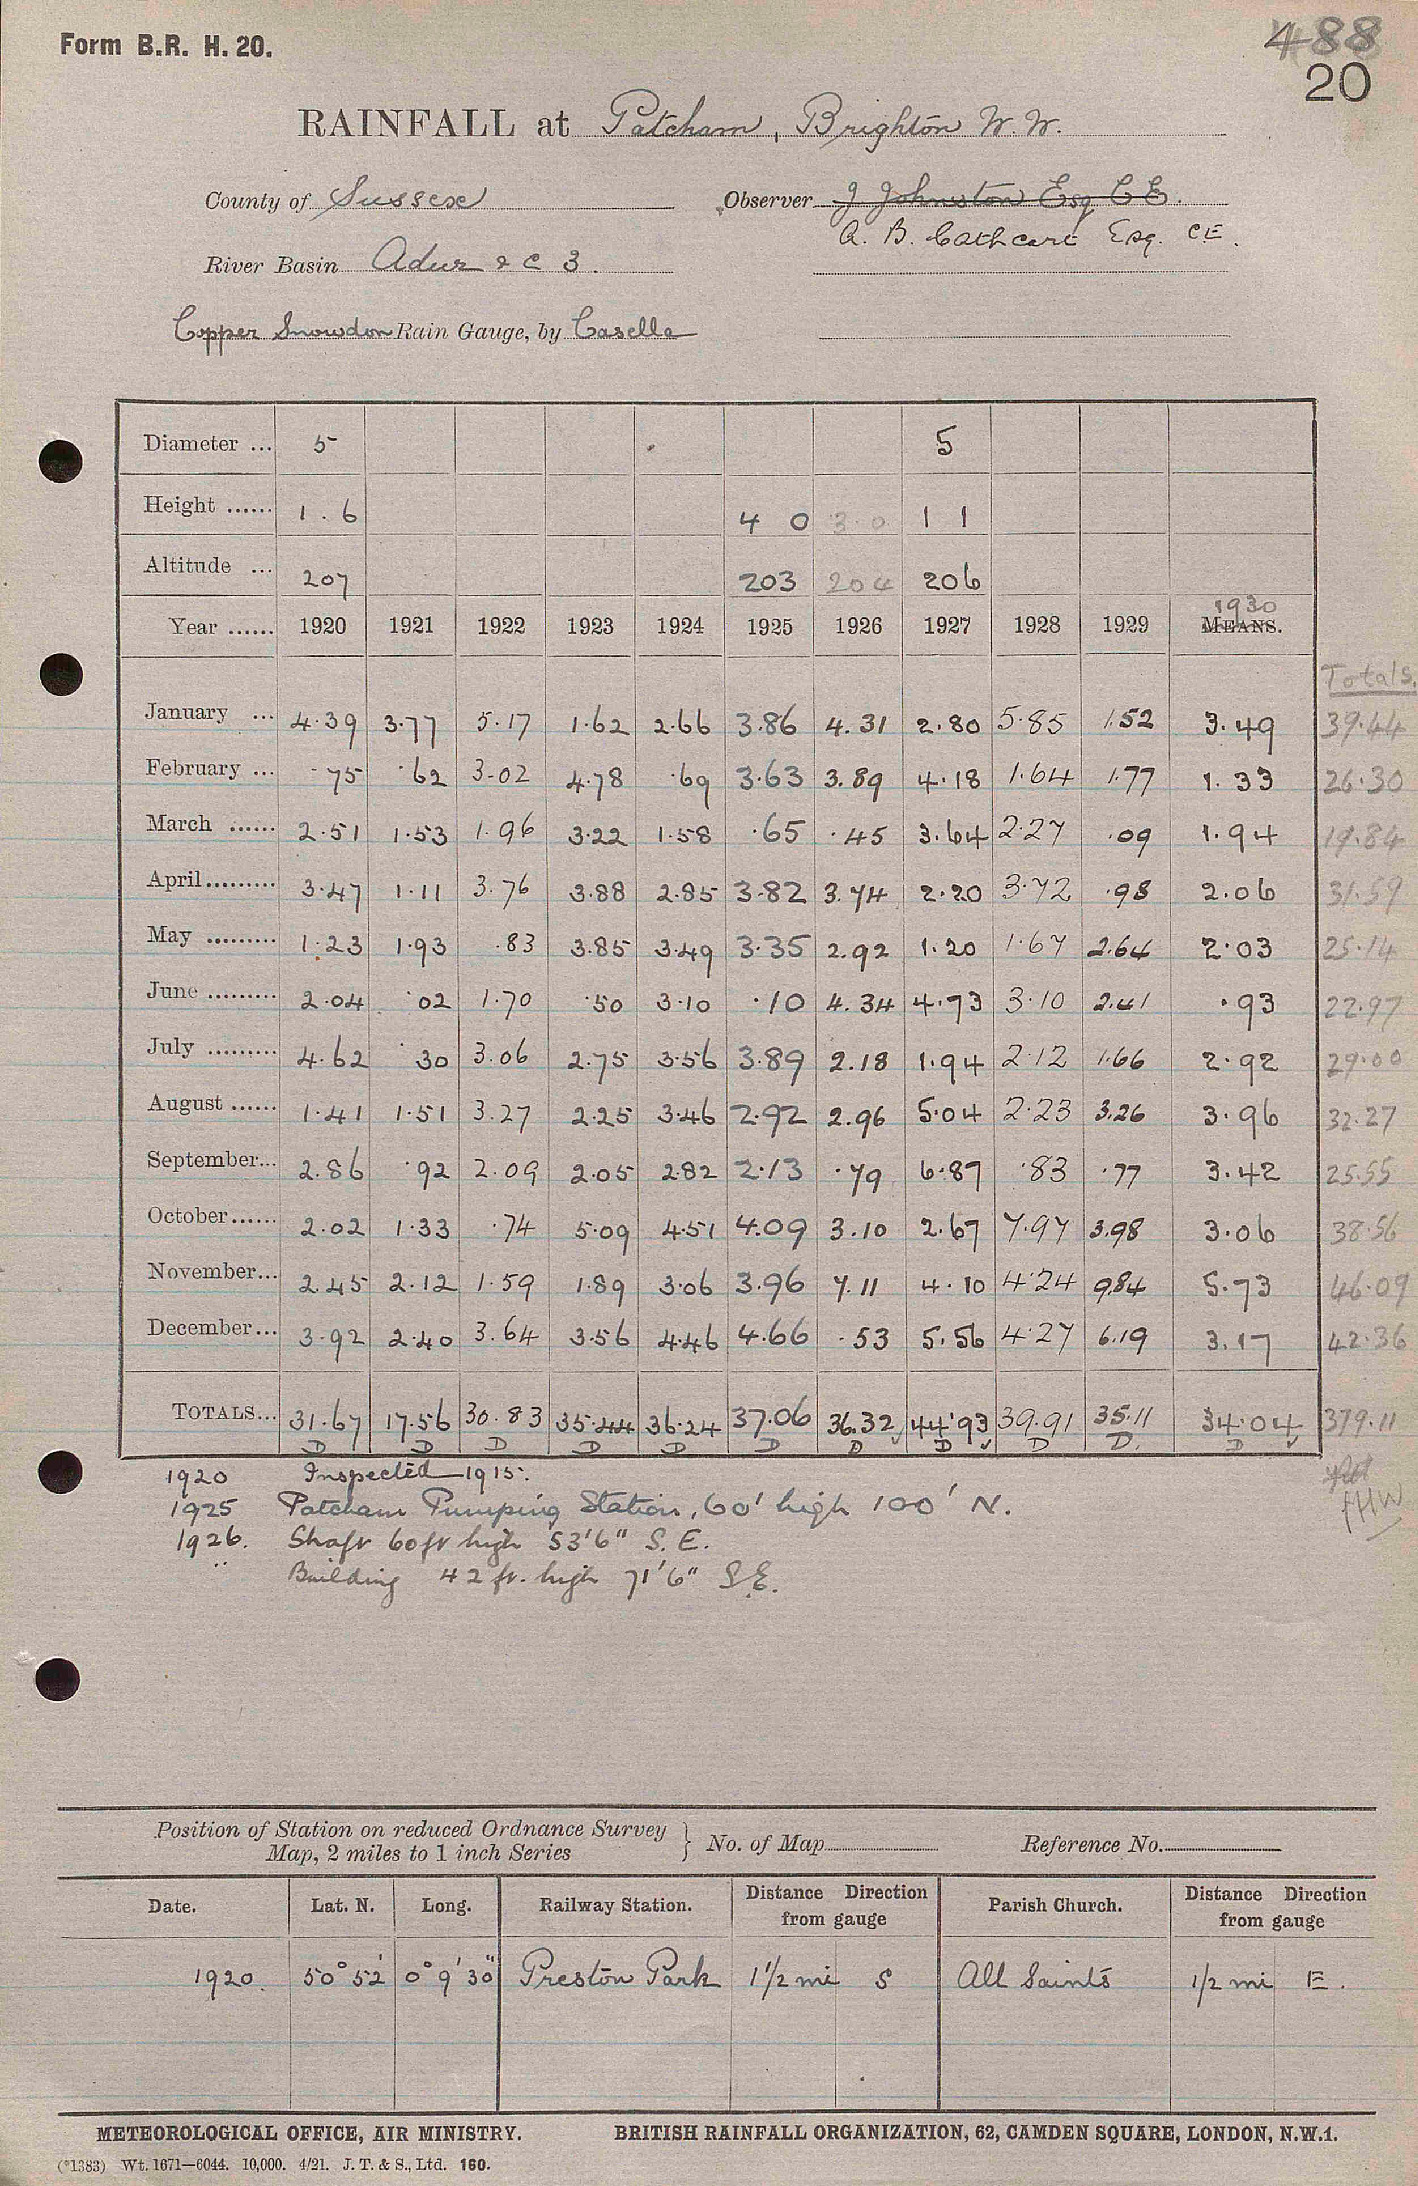 Form B.R. H. 20.
488
20
RAINFALL at Patcham, Brighton W. W.
County of Sussex
Observer J Johnston Esq C E.
A. B. Cathcart Esq. CE.
River Basin Adur & C 3.
Copper Snowdon Rain Gauge, by Casella
Diameter ... 5 5
Height ...... 1 . 6 4 0 3 0 1 1
Altitude ... 207 203 204 206
1930
Year ...... 1920 1921 1922 1923 1924 1925 1926 1927 1928 1929 MEANS.
Totals.
January ... 4.39 3.77 5.17 1.62 2.66 3.86 4.31 2.80 5.85 1.52 3.49 39.44
February ... .75 .62 3.02 4.78 .69 3.63 3.89 4.18 1.64 1.77 1.33 26.30
March ...... 2.51 1.53 1.96 3.22 1.58 .65 .45 3.64 2.27 .09 1.94 19.84
April......... 3.47 1.11 3.76 3.88 2.85 3.82 3.74 2.20 3.72 .98 2.06 31.59
May ......... 1.23 1.93 .83 3.85 3.49 3.35 2.92 1.20 1.67 2.64 2.03 25.14
June ......... 2.04 .02 1.70 .50 3.10 .10 4.34 4.73 3.10 2.41 .93 22.97
July ......... 4.62 .30 3.06 2.75 3.56 3.89 2.18 1.94 2.12 1.66 2.92 29.00
August ...... 1.41 1.51 3.27 2.25 3.46 2.92 2.96 5.04 2.23 3.26 3.96 32.27
September... 2.86 .92 2.09 2.05 2.82 2.13 .79 6.87 .83 .77 3.42 25.55
October...... 2.02 1.33 .74 5.09 4.51 4.09 3.10 2.67 7.97 3.98 3.06 38.56
November... 2.45 2.12 1.59 1.89 3.06 3.96 7.11 4.10 4.24 9.84 5.73 46.09
December... 3.92 2.40 3.64 3.56 4.46 4.66 .53 5.56 4.27 6.19 3.17 42.36
TOTALS... 31.67 17.56 30.83 35.44 36.24 37.06 36.32 44.93 39.91 35.11 34.04 379.11
D D D D D D D D D D. D
1920 Inspected 1915.
1925 Patcham Pumping Station, 60' high 100' N.
1926. Shaft 60ft high 53'6" S. E.
" Building 42 ft. high 71'6" S.E.
Position of Station on reduced Ordnance Survey
Map, 2 miles to 1 inch Series
No. of Map
Reference No.
Date. Lat. N. Long. Railway Station. Distance Direction from gauge Parish Church. Distance Direction from gauge
1920 50° 52' 0° 9' 30" Preston Park 1 1/2 mi S All Saints 1/2 mi E.
METEOROLOGICAL OFFICE, AIR MINISTRY. BRITISH RAINFALL ORGANIZATION, 62, CAMDEN SQUARE, LONDON, N.W.1.
(*1383) Wt. 1671—6044. 10,000. 4/21. J. T. & S., Ltd. 160.